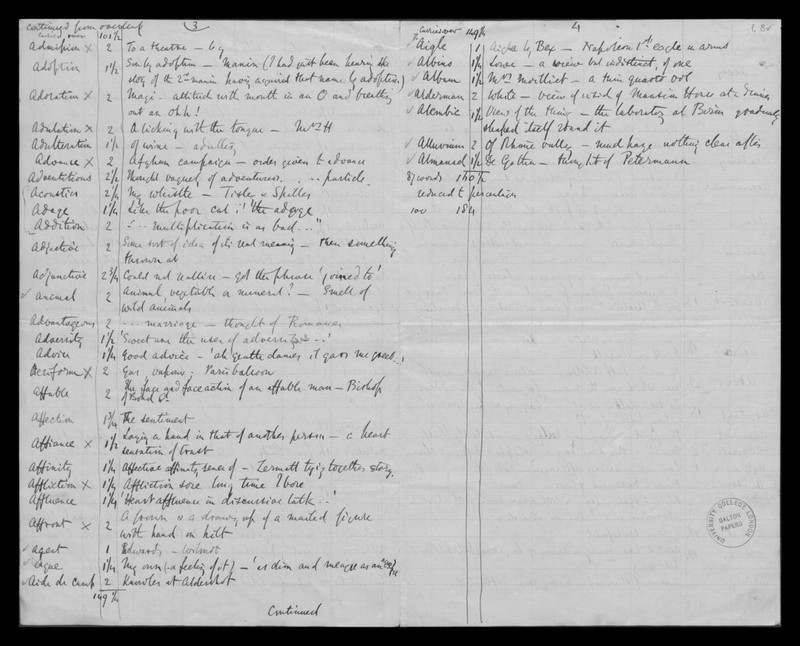 continued from overleaf 3
carried over 101 1/2
Admission x 2 To a theatre — by
Adoption 1 1/2 Son by adoption — Manin (I had just been hearing the
story of the 2nd manin having acquired that name by adoption)
Adoration x 2 Magi — attitude with mouth in an O and breathing
out an ohh!
Adulation x 2 A licking with the tongue — Mr H
Adulteration 1 1/4 of wine — adultery
Advance x 2 Afghan campaign — order given to advance
Adventitious 2 1/2 thought vaguely of adventurers. particle
Acoustics 2 1/4 My whistle — Tisley & Spiller
Adage 1 1/4 Like the poor cat i' the adage
Addition 2 "... multiplication is as bad..."
Adjective 2 Some sort of idea of its real meaning — then something
thrown at
adjunctive 2 3/4 Could not realise — got the phrase 'joined to'
✓ animal 2 animal vegetable or mineral? — Smell of
wild animals
Advantageous 2 ... marriage — thought of Romances
Adversity 1 1/2 'Sweet are the uses of adversity ...'
Advice 1 1/4 Good advice — 'ah gentle dames it gars me greet'
Aeriform x 2 Gas vapour; Paris balloon
Affable 2 The face and face action of an affable man — Bishop
of Bond St
Affection 1 3/4 The sentiment
Affiance x 1 1/2 Laying a hand in that of another person — a heart
sensation of trust
Affinity 1 1/4 affective affinity sense of — Zermatt tying together story.
Affliction x 1 1/4 Affliction sore long time I bore
Affluence 1 1/4 'Heart affluence in discursive talk ...'
Affront x 2 A frown & a drawing up of a mailed figure
with hand on hilt
✓ agent 1 Edwards — Wilmot
✓ Ague 1 1/4 My own (a feeling of it) — 'as dim and meagre as an ague's fit
✓ Aide de camp 2 Knowles at Aldershot
149 1/4
Continued
4
carried over 149 1/4
✓ Aigle 1 Aigle by Bex — Napoleon 1st eagle in arms
✓ Albino 1 1/4 Lorne — a review but indistinct, of one
✓ Album 1 1/4 Mrs Mortlict — a thin quarto vol
✓ Alderman 2 White — view of inside of Mansion House at a dinner
✓ Alembic 1 1/2 View of the thing — the laboratory at Birm gradually
shaped itself round it
✓ Alluvium 2 Of Rhone valley — mud haze nothing clear after
✓ Almanack 1 1/2 de Gotha — thought of Petermann
87 words 160 1/2
reduced to percentages
100 184
UNIVERSITY COLLEGE LONDON
GALTON
PAPERS